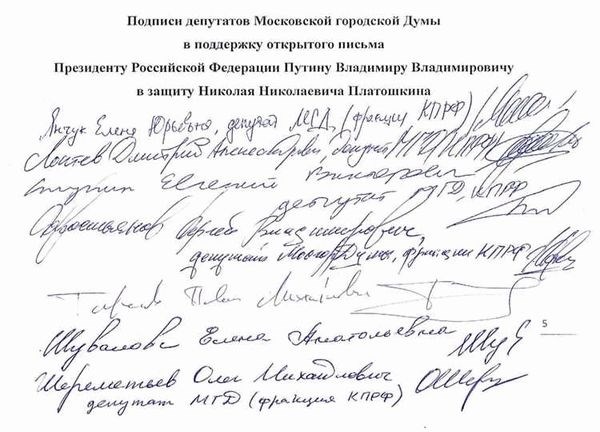 Подписи депутатов Московской городской Думы
в поддержку открытого письма
Президенту Российской Федерации Путину Владимиру Владимировичу
в защиту Николая Николаевича Платошкина
Янчук Елена Юрьевна, депутат МГД, (фракции КПРФ)
Локтев Дмитрий Александрович, депутат МГД КПРФ
Ступин Евгений Викторович
депутат МГД, КПРФ
Савостьянов Сергей Владимирович,
депутат Мосгор Думы, фракции КПРФ
Тарасов Павел Михайлович
5
Шувалова Елена Анатольевна
Шереметьев Олег Михайлович
депутат МГД (фракция КПРФ)